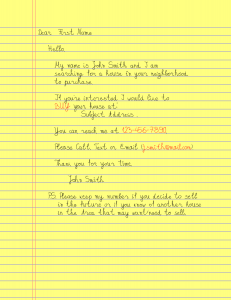 Dear First Name
Hello,
My name is John Smith and I am
searching for a house in your neighborhood
to purchase.
If you're interested I would like to
BUY your house at
Subject Address
You can reach me at 123-456-7890
Please Call, Text or Email (jsmith@mail.com)
Thank you for your time
John Smith
P.S. Please keep my number if you decide to sell
in the future or if you know of another house
in the Area that may want/need to sell